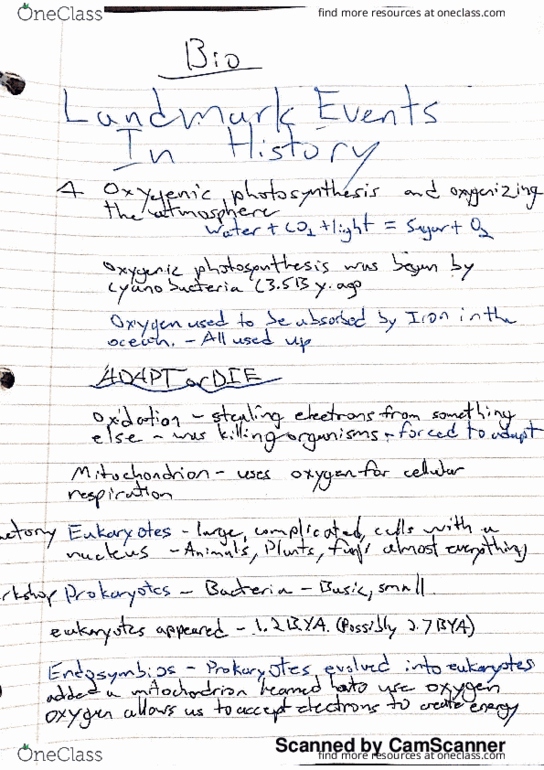 OneClass
find more resources at oneclass.com
Bio
Landmark Events
In History
4 Oxygenic photosynthesis and oxygenizing
the atmosphere
Water + CO2 + light = Sugar + O2
Oxygenic photosynthesis was began by
cyanobacteria (3.5B y. ago
Oxygen used to be absorbed by Iron in the
ocean. - All used up
ADAPT or DIE
Oxidation - stealing electrons from something
else - was killing organisms - forced to adapt
Mitochondrion - uses oxygen for cellular
respiration
Eukaryotes - large, complicated, cells with a
nucleus - Animals, Plants, fungi almost everything
Prokaryotes - Bacteria - Basic, small.
eukaryotes appeared - 1.2 BYA. (Possibly 2.7 BYA)
Endosymbios - Prokaryotes evolved into eukaryotes
added a mitochondrion learned to use oxygen
oxygen allows us to accept electrons to create energy
Scanned by CamScanner
OneClass
find more resources at oneclass.com